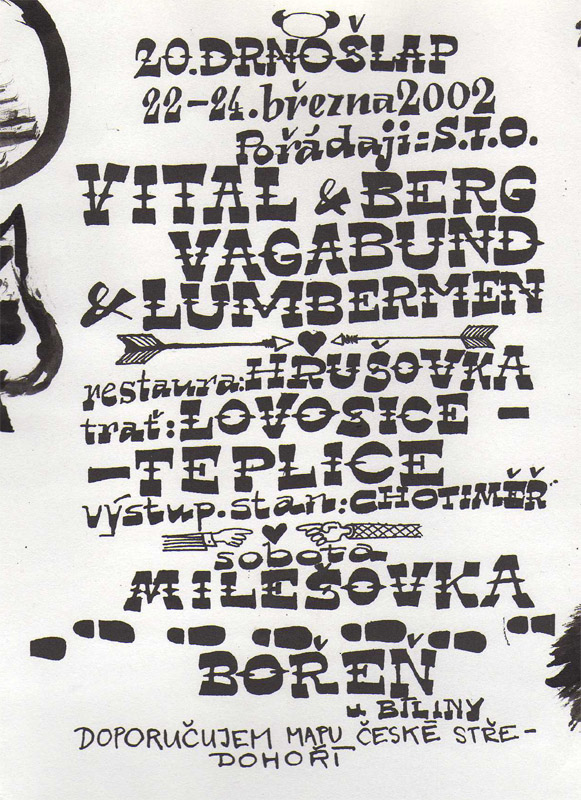 20. DRNOŠLAP
22–24. března 2002
Pořádají: S.T.O.
VITAL & BERG
VAGABUND
& LUMBERMEN
restaura: HRUŠOVKA
trať: LOVOSICE –
– TEPLICE
výstup. stan: CHOTIMĚŘ
sobota
MILEŠOVKA
BOŘEŇ
u BÍLINY
DOPORUČUJEM MAPU ČESKÉ STŘE–
DOHOŘÍ